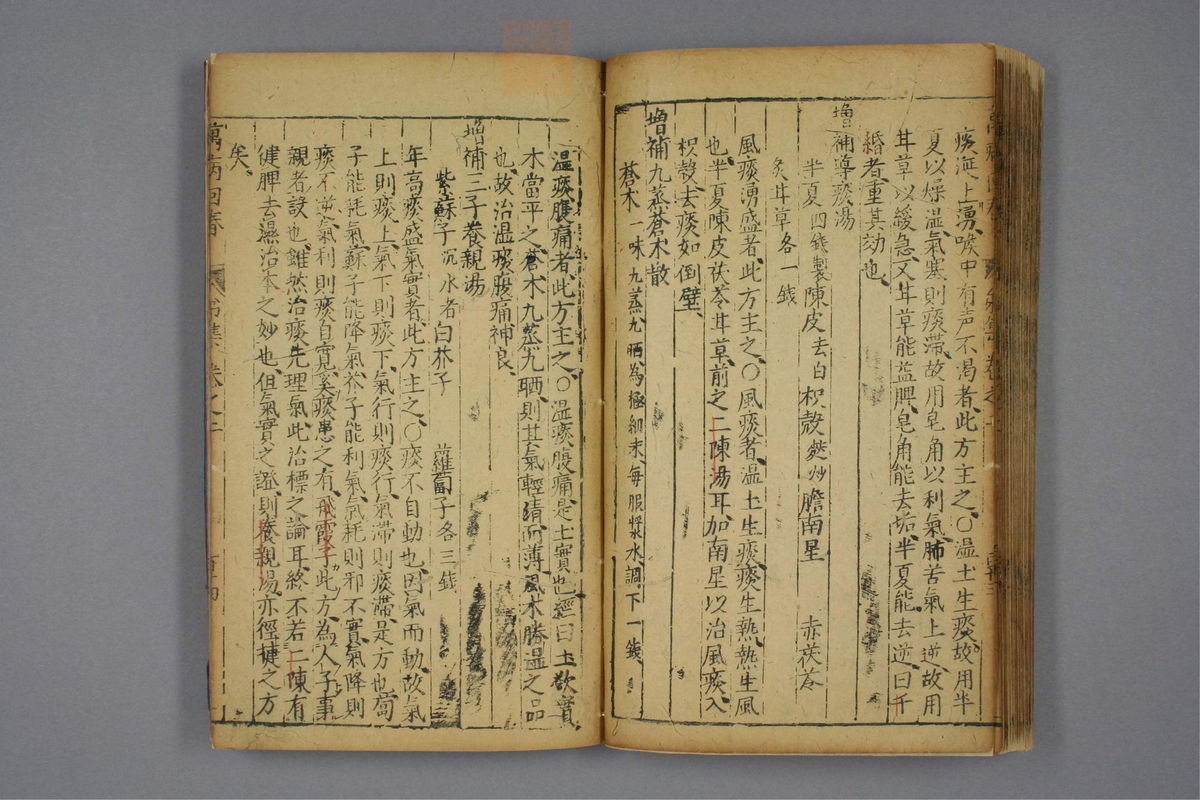 痰涎上湧喉中有声不渴者此方主之○温土生痰故用半
夏以燥温氣寒則痰滞故用皂角以利氣肺苦氣上逆故用
甘草以緩急又甘草能益脾皂角能去垢半夏能去逆曰千
緡者重其効也
增補導痰湯
半夏四錢製陳皮去白枳殼麩炒膽南星 赤茯苓
炙甘草各一錢
風痰湧盛者此方主之○風痰者温土生痰痰生熱熱生風
也半夏陳皮茯苓甘草前之二陳湯耳加南星以治風痰入
枳殼去痰如倒壁
增補九蒸蒼朮散
蒼朮一味九蒸九晒為極細末每服漿水調下一錢
温痰腹痛者此方主之○温痰腹痛是土實也經曰土欲實
木當平之蒼木九蒸九晒則其氣輕清而薄風木勝温之品
也故治温痰腹痛神良
增補三子養親湯
紫蘇子沉水者白芥子 蘿蔔子各三錢
年高痰盛氣實者此方主之○痰不自動也因氣而動故氣
上則痰上氣下則痰下氣行則痰行氣滯則痰滯是方也蔔
子能耗氣蘇子能降氣芥子能利氣氣耗則邪不實氣降則
痰不逆氣利則痰自寬奚痰患之有飛霞子此方為人子事
親者設也雖然治痰先理氣此治標之論耳終不若二陳有
健脾去濕治本之妙也但氣實之證則養親湯亦徑捷之方
矣
萬病回春 卷之二